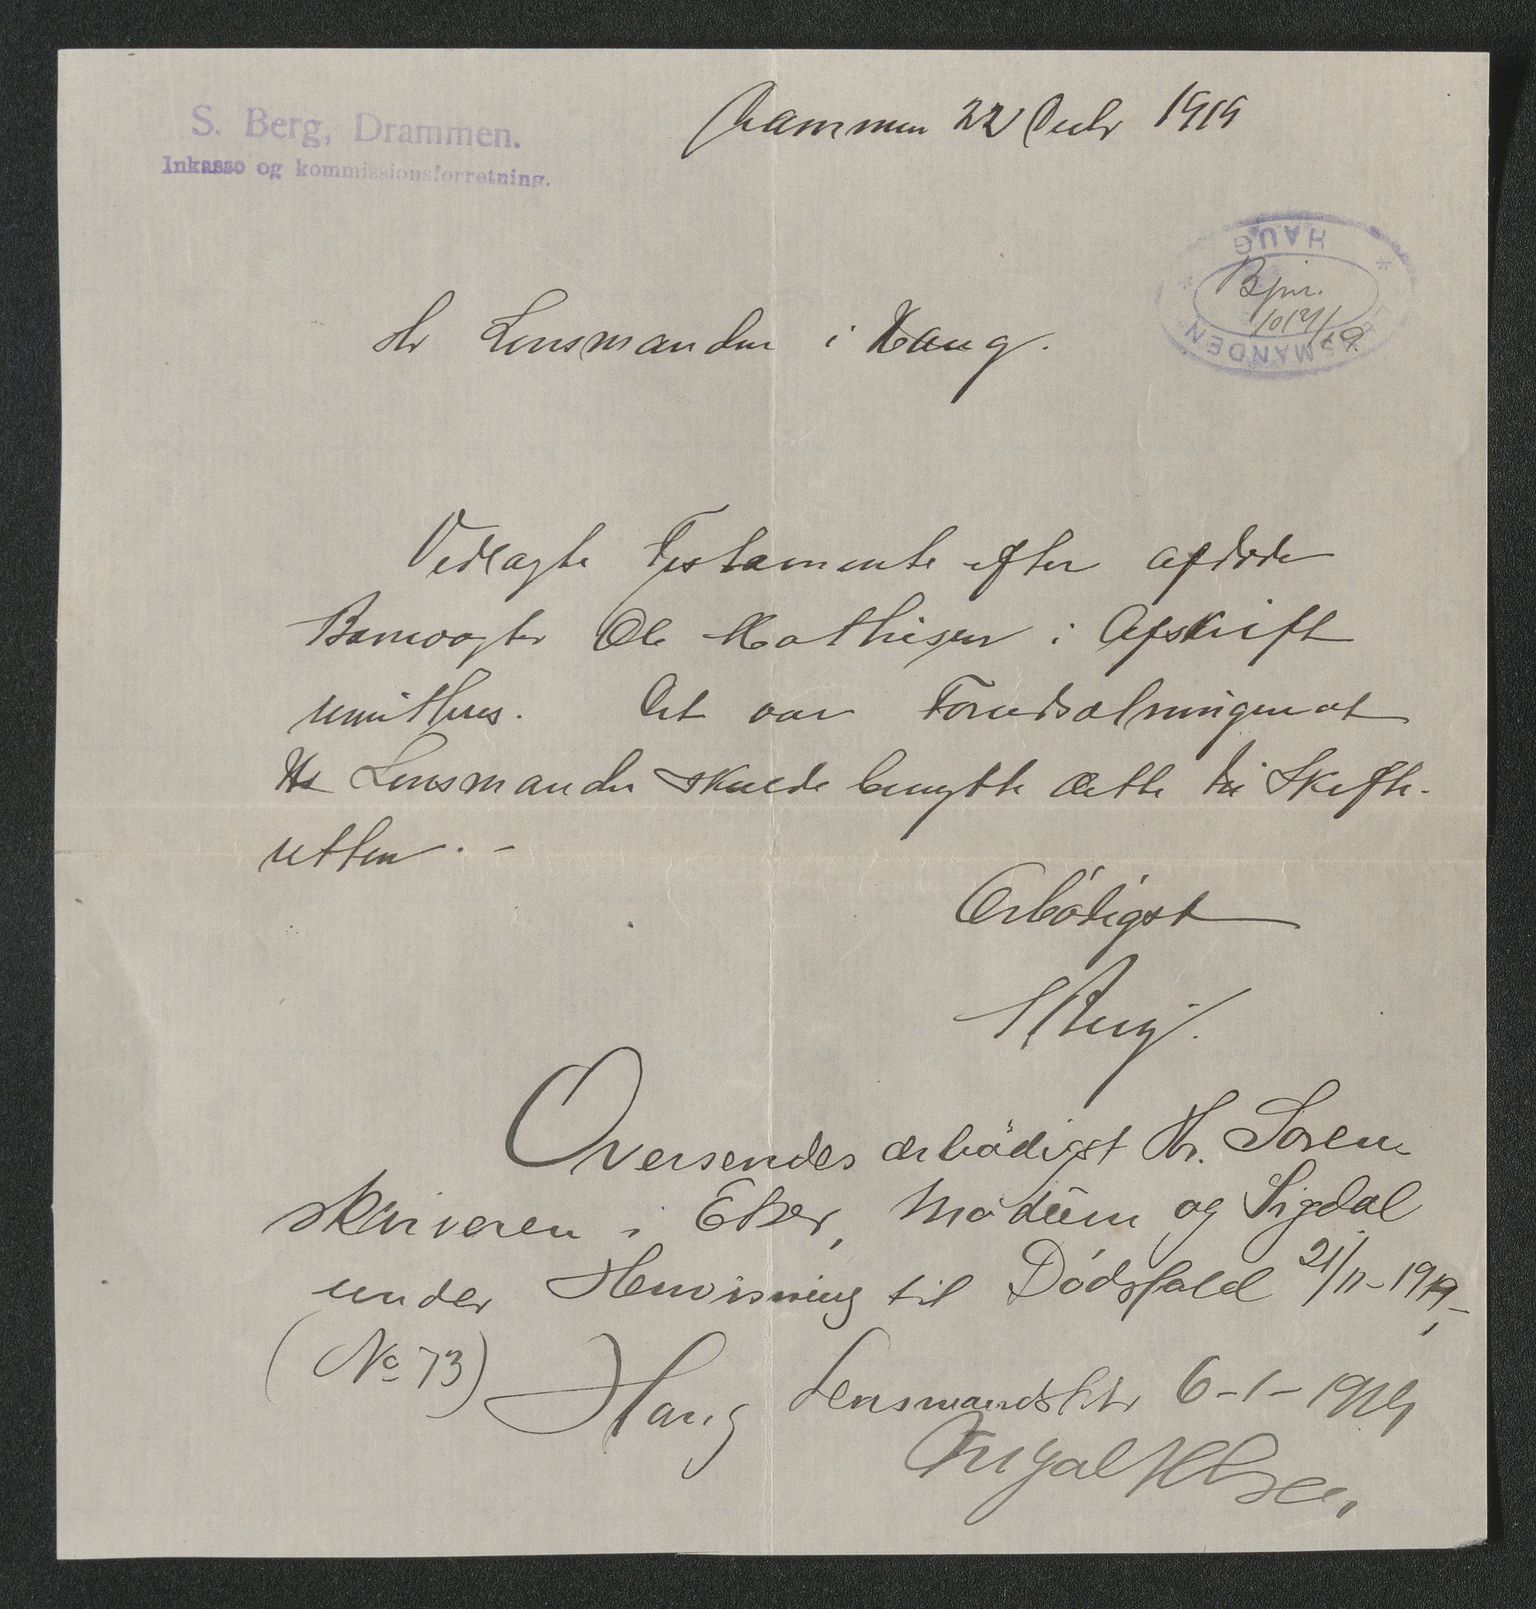 S. Berg, Drammen.
Inkasso og kommissionsforretning.
Drammen 22 Decbr 1919
HAUG
Bjnr.
LENSMANDEN
Hr Lensmanden i Haug.
Vedlagte Testamente efter afdøde
Banevogter Ole Mathisen i Afskrift
remitteres. Det var Forudsætningen at
Hr Lensmanden skulde benytte dette til Skifte-
retten. -
Ærbødigst
S Berg.
Oversendes ærbødigst Hr. Soren
skriveren i Eker, Modum og Sigdal
under Henvisning til Dødsfald 21/11-1919,
(No 73) Haug Lensmandsktr 6-1-1919